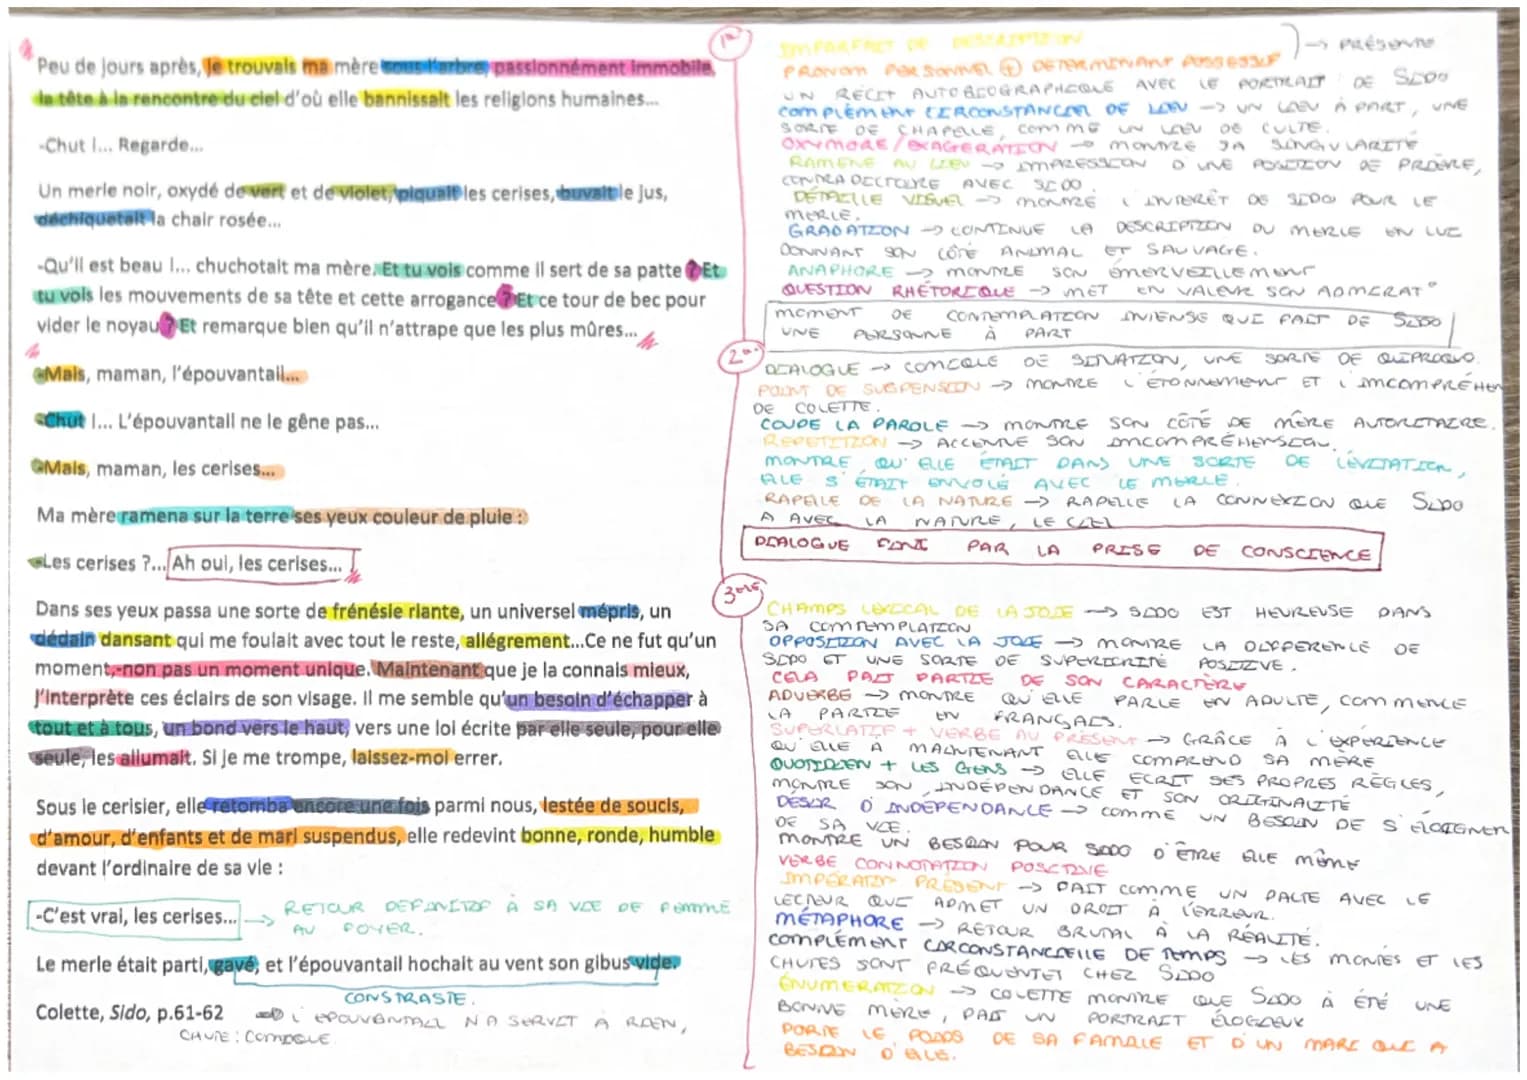 Peu de jours après, je trouvais ma mère sous l'arbre, passionnément immobile,
la tête à la rencontre du ciel d'où elle bannissait les religions humaines...
-Chut !... Regarde...
Un merle noir, oxydé de vert et de violet, piquait les cerises, buvait le jus,
déchiquetait la chair rosée...
-Qu'il est beau !... chuchotait ma mère. Et tu vois comme il sert de sa patte ? Et
tu vois les mouvements de sa tête et cette arrogance ? Et ce tour de bec pour
vider le noyau ? Et remarque bien qu'il n'attrape que les plus mûres...
-Mais, maman, l'épouvantail...
-Chut !... L'épouvantail ne le gêne pas...
-Mais, maman, les cerises...
Ma mère ramena sur la terre ses yeux couleur de pluie :
-Les cerises ?... Ah oui, les cerises...
Dans ses yeux passa une sorte de frénésie riante, un universel mépris, un
dédain dansant qui me foulait avec tout le reste, allégrement...Ce ne fut qu'un
moment,-non pas un moment unique. Maintenant que je la connais mieux,
j'interprète ces éclairs de son visage. Il me semble qu'un besoin d'échapper à
tout et à tous, un bond vers le haut, vers une loi écrite par elle seule, pour elle
seule, les allumait. Si je me trompe, laissez-moi errer.
Sous le cerisier, elle retomba encore une fois parmi nous, lestée de soucis,
d'amour, d'enfants et de mari suspendus, elle redevint bonne, ronde, humble
devant l'ordinaire de sa vie :
-C'est vrai, les cerises... → RETOUR DEFINITIF À SA VIE DE FEMME
AU FOYER.
Le merle était parti, gavé, et l'épouvantail hochait au vent son gibus vide.
CONSTRASTE.
Colette, Sido, p.61-62
L'EPOUVANTAIL N'A SERVIT À RIEN,
CHUTE : COMIQUE
1er
IMPARFAIT DE DESCRIPTION → PRÉSENTE
PRONOM PERSONNEL + DETERMINANT POSSESSIF
UN RÉCIT AUTOBIOGRAPHIQUE AVEC LE PORTRAIT DE SIDO
COMPLÉMENT CIRCONSTANCIEL DE LIEU → UN LIEU À PART, UNE
SORTE DE CHAPELLE, COMME UN LIEU DE CULTE.
OXYMORE/EXAGERATION → MONTRE SA SINGULARITÉ
RAMENE AU LIEU → IMPRESSION D'UNE POSITION DE PRIÈRE,
CONTRADICTOIRE AVEC SIDO
DÉTAILLE VISUEL → MONTRE L'INTERÊT DE SIDO POUR LE
MERLE.
GRADATION → CONTINUE LA DESCRIPTION DU MERLE EN LUI
DONNANT SON CÔTÉ ANIMAL ET SAUVAGE.
ANAPHORE → MONTRE SON ÉMERVEILLEMENT
QUESTION RHÉTORIQUE → MET EN VALEUR SON ADMIRAT°
MOMENT DE CONTEMPLATION INTENSE QUI FAIT DE SIDO
UNE PERSONNE À PART
2em
DIALOGUE → COMIQUE DE SITUATION, UNE SORTE DE QUIPROQUO.
POINT DE SUSPENSION → MONTRE L'ÉTONNEMENT ET L'IMCOMPRÉHEN
DE COLETTE.
COUPE LA PAROLE → MONTRE SON CÔTÉ DE MÈRE AUTORITAIRE.
REPETITION → ACCENTUE SON IMCOMPRÉHENSION.
MONTRE QU'ELLE ÉTAIT DANS UNE SORTE DE LÉVITATION,
ELLE S'ÉTAIT ENVOLÉ AVEC LE MERLE.
RAPELLE DE LA NATURE → RAPELLE LA CONNEXION QUE SIDO
A AVEC LA NATURE, LE CIEL
DIALOGUE FINI PAR LA PRISE DE CONSCIENCE
3eme
CHAMPS LEXICAL DE LA JOIE → SIDO EST HEUREUSE DANS
SA COMTEMPLATION
OPPOSITION AVEC LA JOIE → MONTRE LA DIFFERENCE DE
SIDO ET UNE SORTE DE SUPERIORITÉ POSITIVE.
CELA FAIT PARTIE DE SON CARACTÈRE
ADVERBE → MONTRE QU'ELLE PARLE EN ADULTE, COMMENCE
LA PARTIE EN FRANÇAIS.
SUPERLATIF + VERBE AU PRÉSENT → GRÂCE À L'EXPÉRIENCE
QU'ELLE A MAINTENANT ELLE COMPREND SA MÈRE
QUOTIDIEN + LES GENS → ELLE ECRIT SES PROPRES RÈGLES,
MONTRE SON INDÉPENDANCE ET SON ORIGINALITÉ
DESIR D'INDEPENDANCE → COMME UN BESOIN DE S'ÉLOIGNER
DE SA VIE.
MONTRE UN BESOIN POUR SIDO D'ÊTRE ELLE MÊME
VERBE CONNOTATION POSITIVE
IMPÉRATIF PRÉSENT → FAIT COMME UN PACTE AVEC LE
LECTEUR QUI ADMET UN DROIT À L'ERREUR.
MÉTAPHORE → RETOUR BRUTAL À LA RÉALITÉ.
COMPLÉMENT CIRCONSTANCIELLE DE TEMPS → LES MONTÉS ET LES
CHUTES SONT FRÉQUENTET CHEZ SIDO
ÉNUMERATION → COLETTE MONTRE QUE SIDO À ÉTÉ UNE
BONNE MÈRE, FAIT UN PORTRAIT ÉLOGIEUX
PORTE LE POIDS DE SA FAMILLE ET D'UN MARI QUI A
BESOIN D'ELLE.